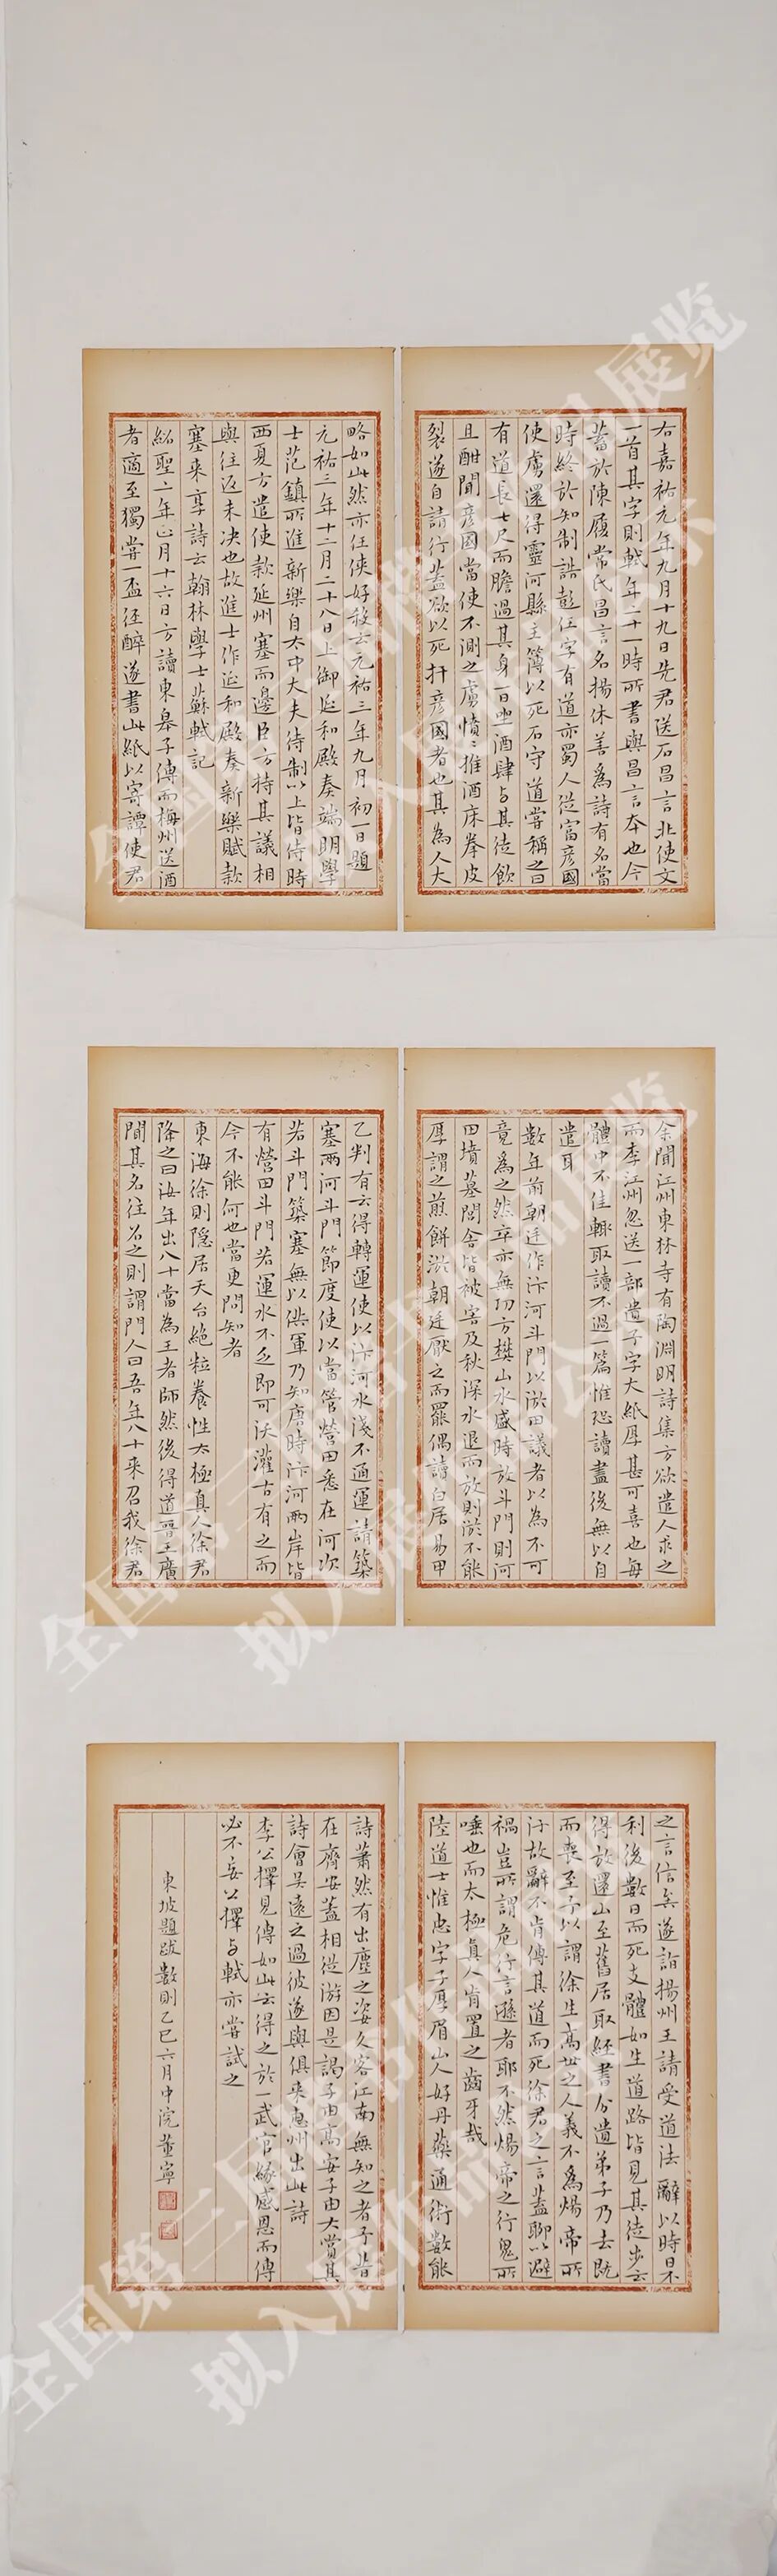 右嘉祐元年九月十九日先君送石昌言北使文
一首其字則軾年二十一時所書與昌言本也今
蓄於陳履常氏昌言名揚休善為詩有名當
時終於知制誥彭任字有道亦蜀人從富彦國
使虜還得靈河縣主簿以死石守道嘗稱之曰
有道長七尺而膽過其身一日坐酒肆与其徒飲
且酣聞彦國當使不測之虜憤〻推酒床拳皮
裂遂自請行蓋欲以死扞彦國者也其為人大
略如此然亦任俠好殺云元祐三年九月初一日題
元祐三年十二月二十八日上御延和殿奏端明學
士范鎮所進新樂自太中大夫待制以上皆侍時
西夏方遣使款延州塞而邊臣方持其議相
與往返未决也故進士作延和殿奏新樂賦款
塞來享詩云翰林學士蘇軾記
紹聖二年正月十六日方讀東皋子傳而梅州送酒
者適至獨嘗一盃徑醉遂書此紙以寄譚使君
余聞江州東林寺有陶淵明詩集方欲遣人求之
而李江州忽送一部遺予字大紙厚甚可喜也每
體中不佳輒取讀不過一篇惟恐讀盡後無以自
遣耳
數年前朝廷作汴河斗門以淤田議者以為不可
竟為之然卒亦無功方樊山水盛時放斗門則河
田墳墓閭舍皆被害及秋深水退而放則淤不能
厚謂之煎餅淤朝廷厭之而罷偶讀白居易甲
乙判有云得轉運使以汴河水淺不通運請築
塞兩河斗門節度使以當管營田悉在河次
若斗門築塞無以供軍乃知唐時汴河兩岸皆
有營田斗門若運水不乏即可沃灌古有之而
今不能何也當更問知者
東海徐則隐居天台絶粒養性太極真人徐君
降之曰汝年出八十當為王者師然後得道晉王廣
聞其名往召之則謂門人曰吾年八十来召我徐君
之言信矣遂詣揚州王請受道法辭以時日不
利後數日而死支體如生道路皆見其徒步云
得放還山至舊居取經書分遺弟子乃去既
而喪至予以謂徐生高世之人義不爲煬帝所
汙故辭不肯傳其道而死徐君之言蓋聊以避
禍豈所謂危行言遜者耶不然煬帝之行鬼所
唾也而太極真人肯置之齒牙哉
陸道士惟忠字子厚眉山人好丹藥通術數能
詩蕭然有出塵之姿久客江南無知之者予昔
在齊安蓋相從游因是謁子由高安子由大賞其
詩會吴遠之過彼遂與俱来惠州出此詩
李公擇見傳如此云得之於一武官緣感恩而傳
必不妄公擇与軾亦嘗試之
東坡題跋數則乙巳六月中浣董寧
全国第三届
拟入展作品公示